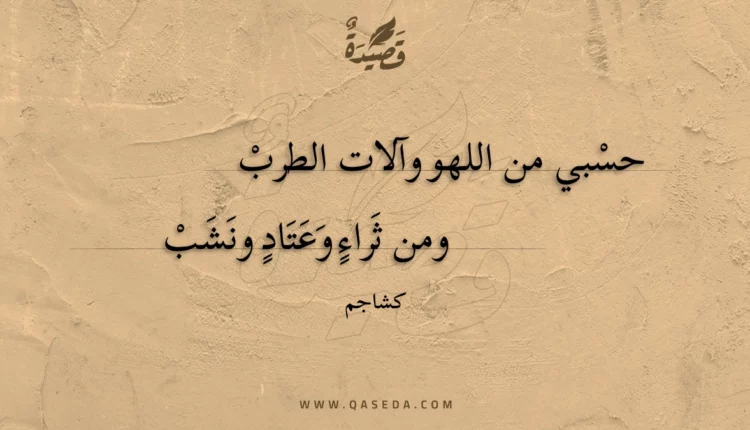 قَصِيدَةٌ
حسْبي من اللهو وآلات الطربْ
ومن ثَراءٍ وَعَتَادٍ ونَشَبْ
كشاجم
WWW.QASEDA.COM